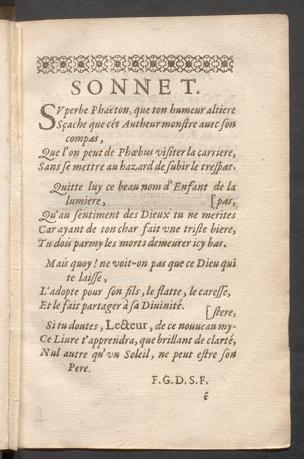 SONNET.
SVperbe Phaëton, que ton humeur altiere
Sçache que cét Autheur monstre auec son
compas,
Que l'on peut de Phœbus visiter la carriere,
Sans se mettre au hazard de subir le trespas.
Quitte luy ce beau nom d'Enfant de la
lumiere, [pas,
Qu'au sentiment des Dieux tu ne merites
Car ayant de ton char fait vne triste biere,
Tu dois parmy les morts demeurer icy bas.
Mais quoy ! ne voit-on pas que ce Dieu qui
te laisse,
L'adopte pour son fils, le flatte, le caresse,
Et le fait partager à sa Diuinité. [stere,
Si tu doutes, Lecteur, de ce nouueau my-
Ce Liure t'apprendra, que brillant de clarté,
Nul autre qu'vn Soleil, ne peut estre son
Pere.
F. G. D. S. F.
é